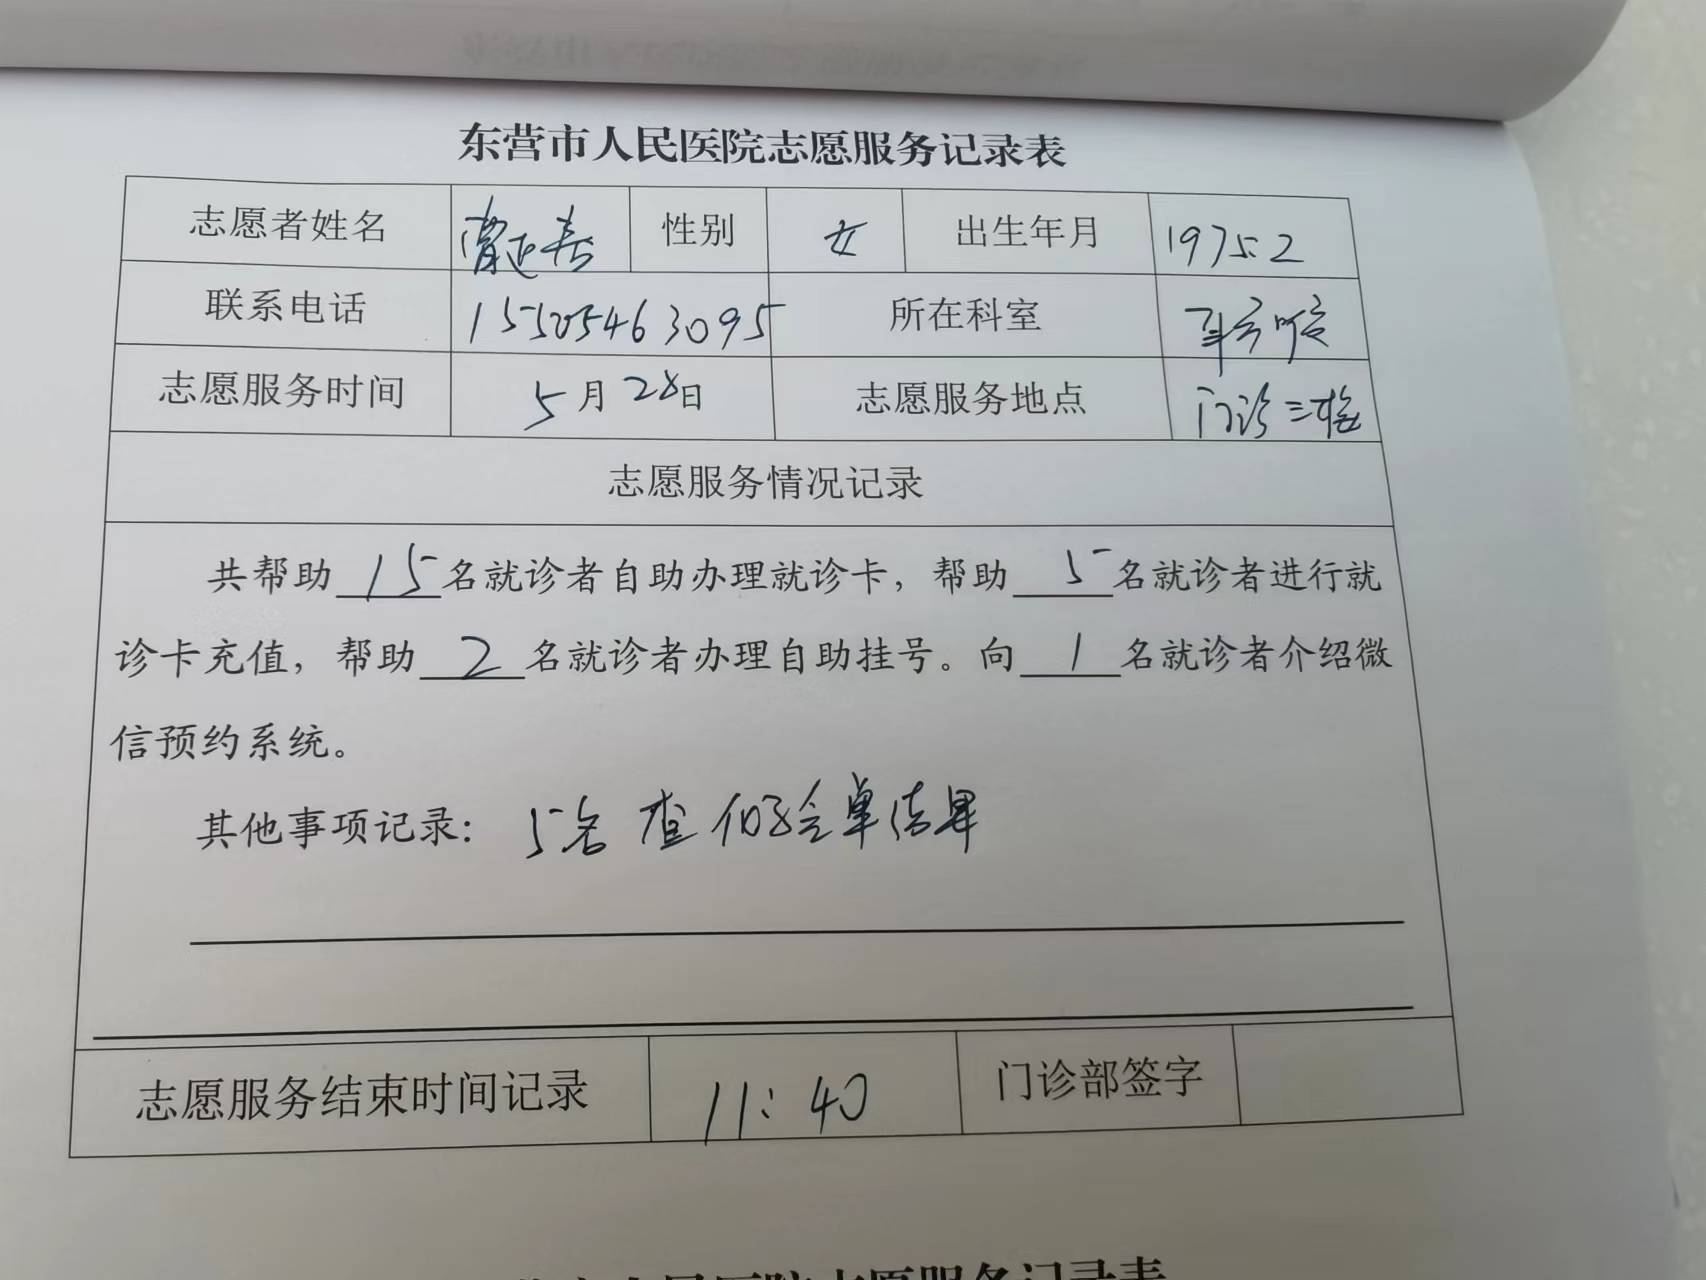 东营市人民医院志愿服务记录表
志愿者姓名 性别 女 出生年月 1975.2
联系电话 15505463095 所在科室
志愿服务时间 5月28日 志愿服务地点 门诊三楼
志愿服务情况记录
共帮助 15 名就诊者自助办理就诊卡，帮助 5 名就诊者进行就
诊卡充值，帮助 2 名就诊者办理自助挂号。向 1 名就诊者介绍微
信预约系统。
其他事项记录： 5名 查 化验单结果
志愿服务结束时间记录 11:40 门诊部签字